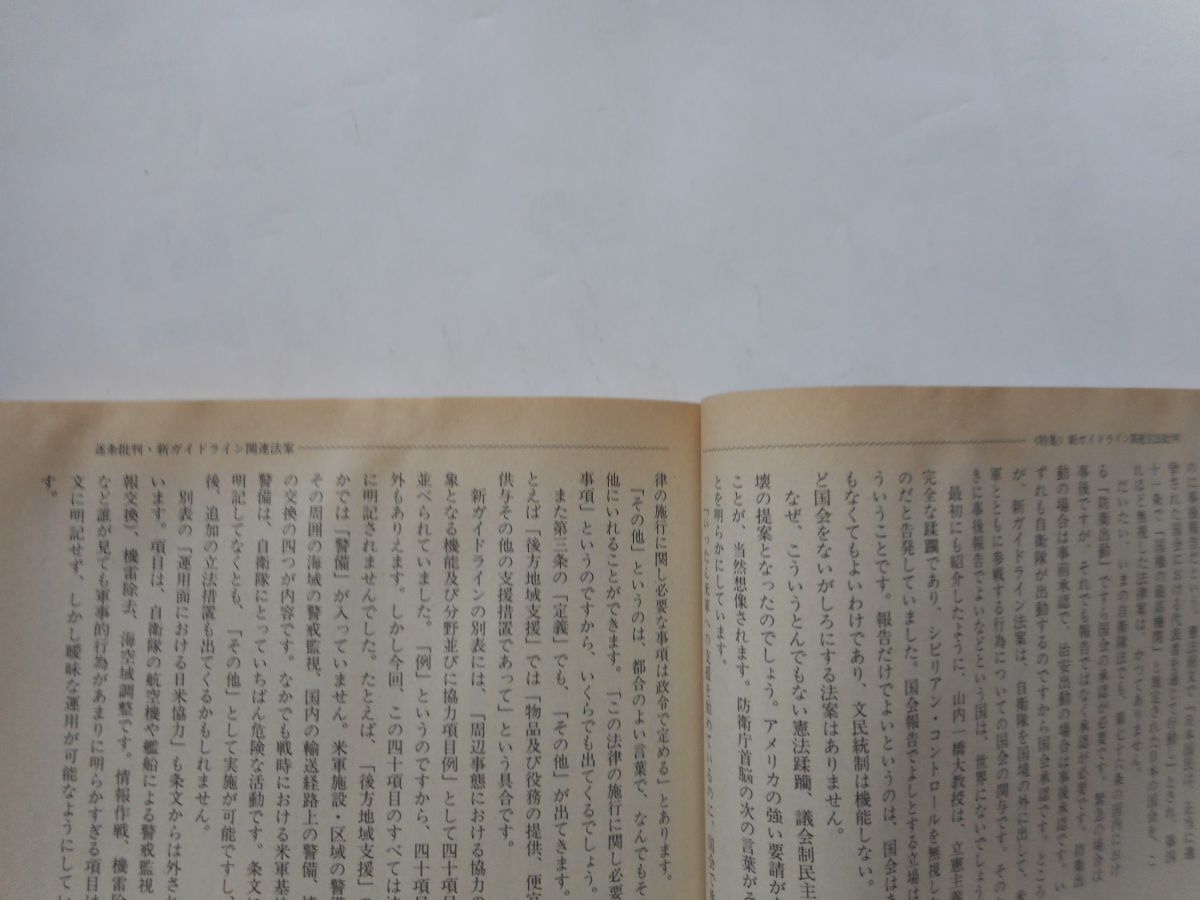 〈特集〉新ガイドライン関連立法批判
十一条で「国権の最高機関」と規定された日本の国会を、こ
れほど無視した法律案は、かつてありません。
だいたい、いまの自衛隊法でも、第七十六条の国内におけ
る「防衛出動」ですら国会の承認が必要です。緊急の場合は
事後ですが、それでも報告ではなく承認が必要です。防衛出
動の場合は事前承認で、治安出動の場合は事後承認です。い
ずれも自衛隊が出動するのですから国会承認です。ところ
が、新ガイドライン法案は、自衛隊を国境の外に出して、米
軍とともに参戦する行為についての国会の関与です。そのと
きに事後報告でよいなどという国は、世界にないでしょう
最初にも紹介したように、山内一橋大教授は、立憲主義
完全な蹂躙であり、シビリアン・コントロールを無視し
のだと告発していました。国会報告でよしとする立場は
ういうことです。報告だけでよいというのは、国会はあ
もなくてもよいわけであり、文民統制は機能しない。
ど国会をないがしろにする法案はありません。
なぜ、こういうとんでもない憲法蹂躙、議会制民主
壊の提案となったのでしょう。アメリカの強い要請が
ことが、当然想像されます。防衛庁首脳の次の言葉が
とを明らかにしています。
「いったん米軍への支援を始めているのに、国会で
逐条批判・新ガイドライン関連法案
律の施行に関し必要な事項は政令で定める」とあります。
「その他」というのは、都合のよい言葉で、なんでもそ
他にいれることができます。「この法律の施行に関し必要
事項」というのですから、いくらでも出てくるでしょう。
また第三条の「定義」でも、「その他」が出てきます。
とえば「後方地域支援」では「物品及び役務の提供、便宜
供与その他の支援措置であって」という具合です。
新ガイドラインの別表には、「周辺事態における協力の
象となる機能及び分野並びに協力項目例」として四十項目
並べられていました。「例」というのですから、四十項目
外もありえます。しかし今回、この四十項目のすべては法
に明記されませんでした。たとえば、「後方地域支援」の
かでは「警備」が入っていません。米軍施設・区域の警備
その周囲の海域の警戒監視、国内の輸送経路上の警備、情
の交換の四つが内容です。なかでも戦時における米軍基
警備は、自衛隊にとっていちばん危険な活動です。条文に
明記してなくとも、「その他」として実施が可能ですし、
後、追加の立法措置も出てくるかもしれません。
別表の「運用面における日米協力」も条文からは外さ
います。項目は、自衛隊の航空機や艦船による警戒監視
報交換）、機雷除去、海空域調整です。情報作戦、機雷除
など誰が見ても軍事的行為があまりに明らかすぎる項目は
文に明記せず、しかし曖昧な運用が可能なようにしてい
す。